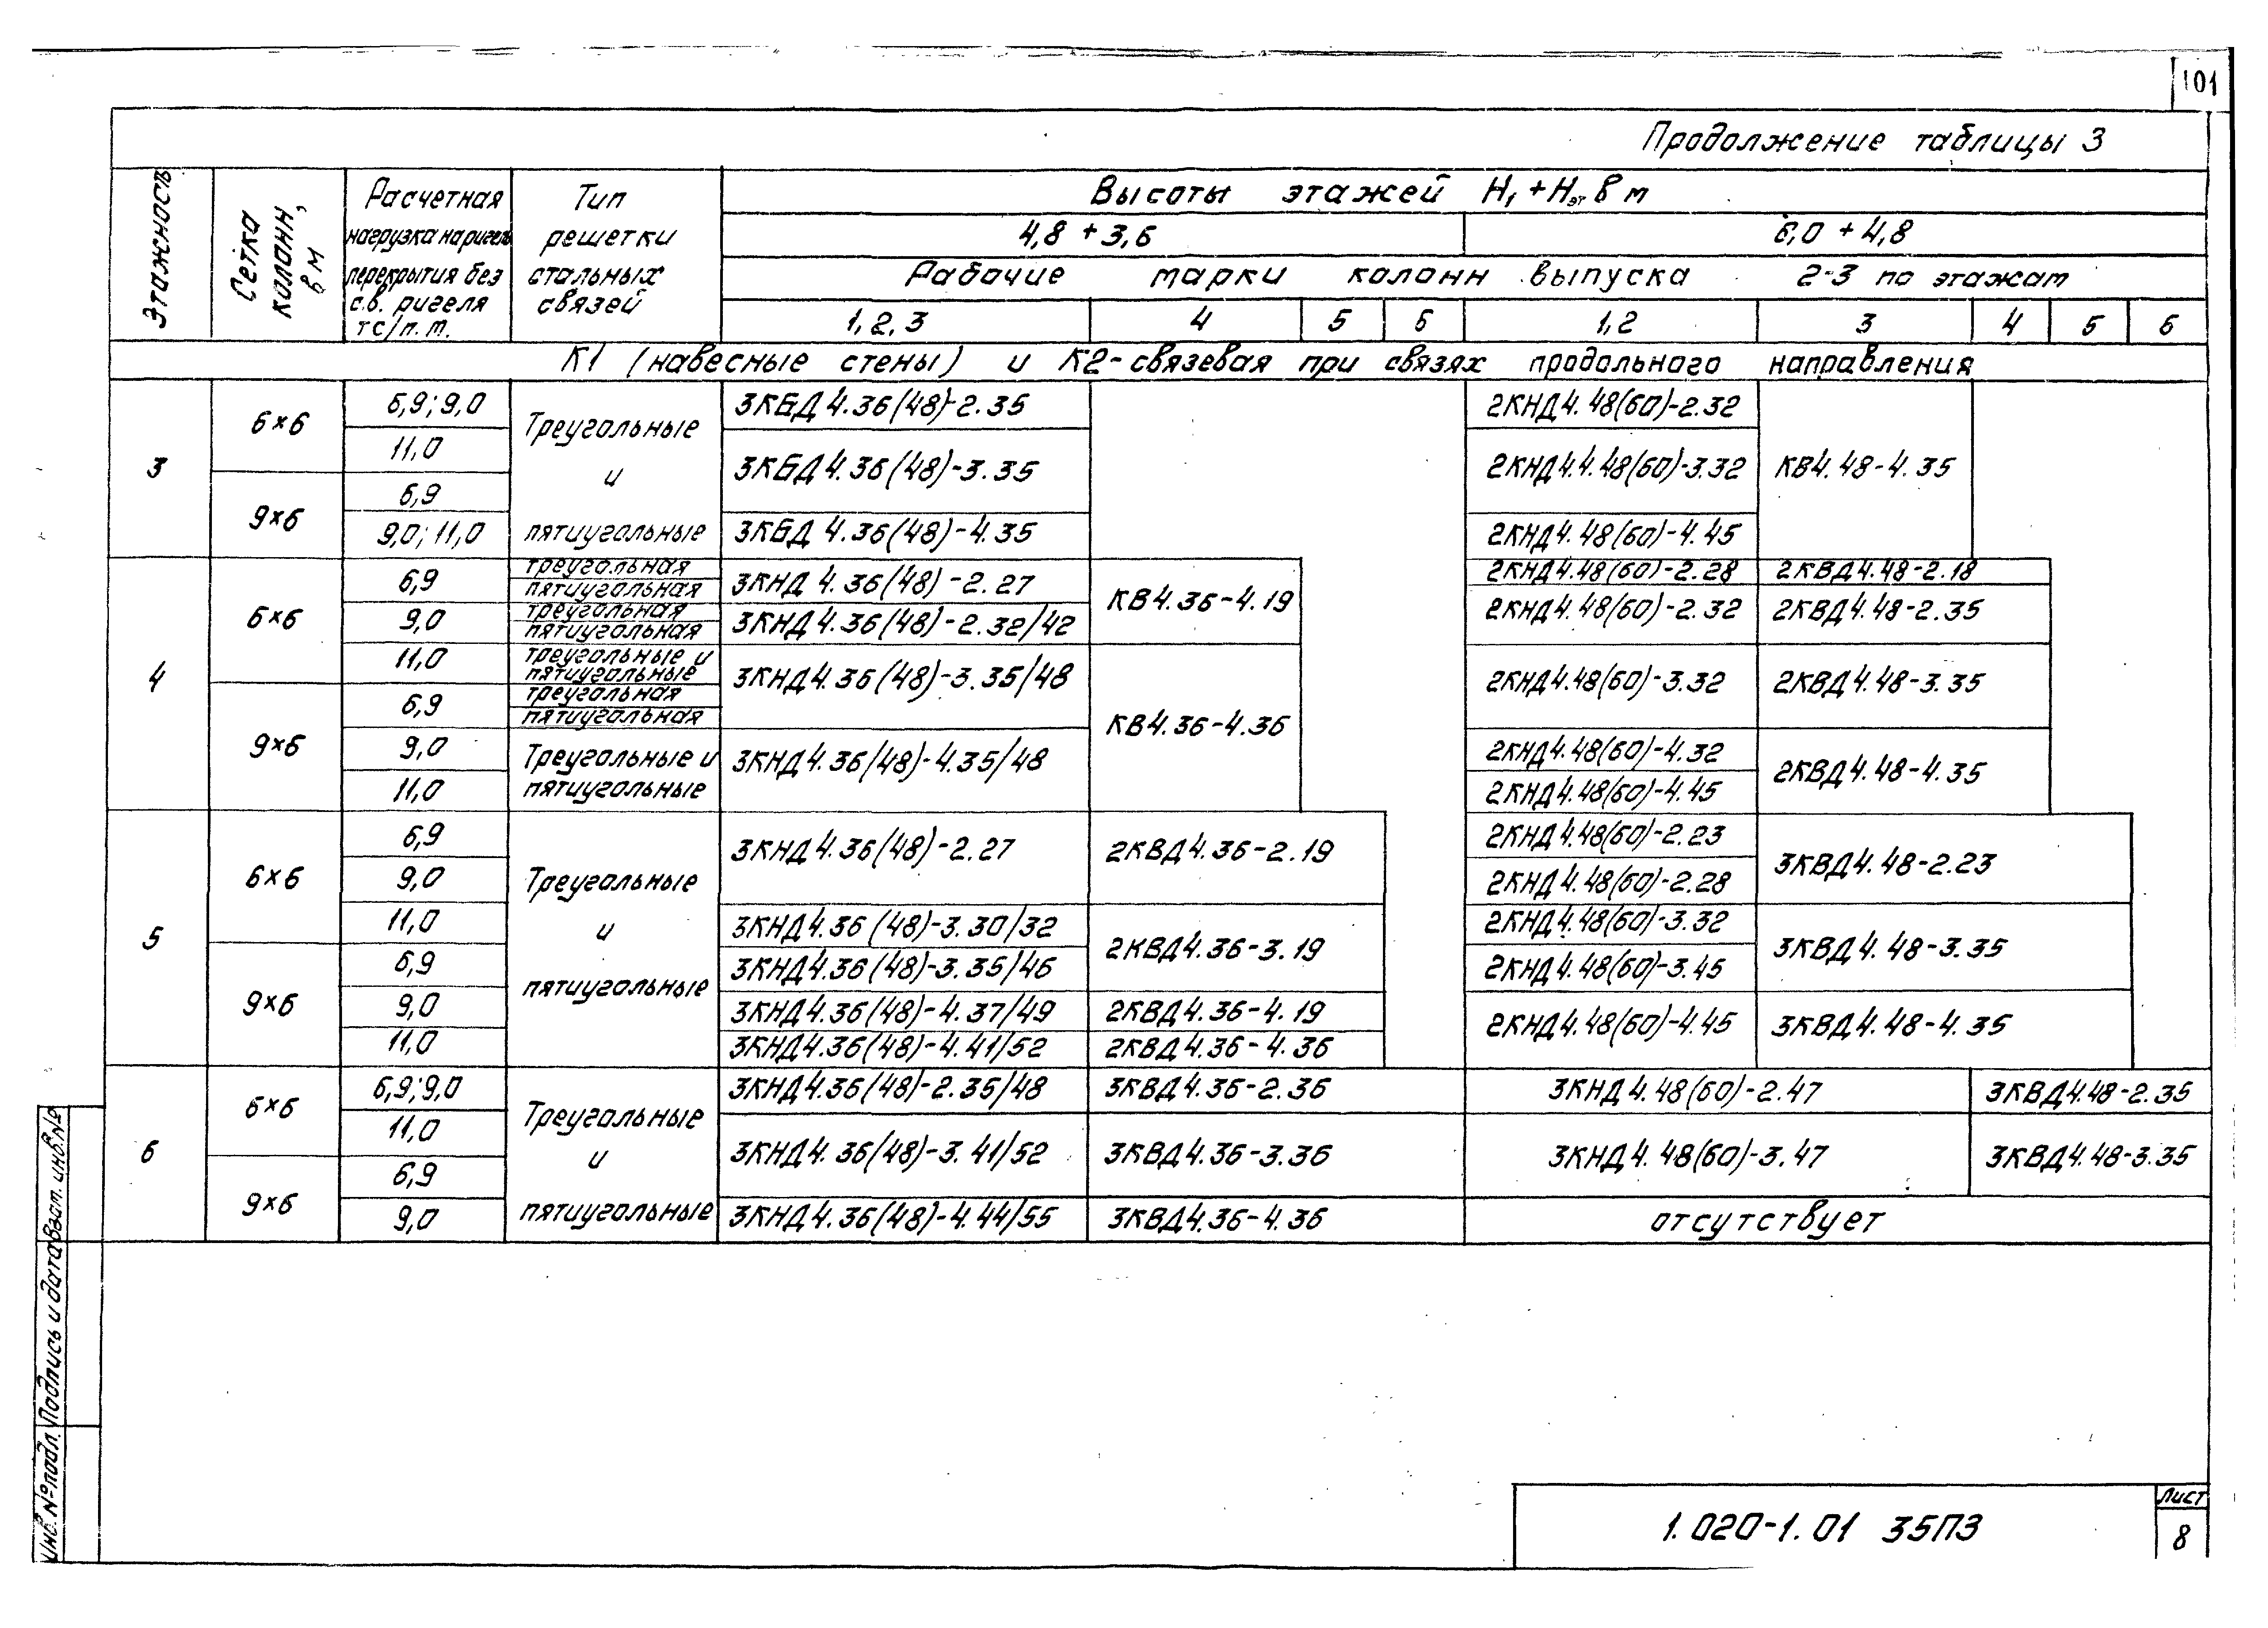 101
Продолжение таблицы 3
Этажность
Сетка колонн, в м
Расчетная нагрузка на ригель перекрытия без с.в. ригеля тс/п.м.
Тип решетки стальных связей
Высоты этажей H1 + Hэт в м
4,8 + 3,6 6,0 + 4,8
Рабочие марки колонн выпуска 2-3 по этажам
1, 2, 3 4 5 6 1,2 3 4 5 6
К1 (навесные стены) и К2-связевая при связях продольного направления
3 6×6 6,9; 9,0 Треугольные и пятиугольные 3КБД4.36(48)-2.35 2КНД4.48(60)-2.32 КВ4.48-4.35
11,0 3КБД4.36(48)-3.35 2КНД4.4.48(60)-3.32
9×6 6,9
9,0; 11,0 3КБД 4.36(48)-4.35 2КНД4.48(60)-4.45
4 6×6 6,9 треугольная 3КНД 4.36(48)-2.27 КВ4.36-4.19 2КНД4.48(60)-2.28 2КВД4.48-2.18
пятиугольная 2КНД4.48(60)-2.32 2КВД4.48-2.35
9,0 треугольная 3КНД4.36(48)-2.32/42
пятиугольная
11,0 треугольные и пятиугольные 3КНД4.36(48)-3.35/48 КВ4.36-4.36 2КНД4.48(60)-3.32 2КВД4.48-3.35
9×6 6,9 треугольная
пятиугольная
9,0 Треугольные и 3КНД4.36(48)-4.35/48 2КНД4.48(60)-4.32 2КВД4.48-4.35
11,0 пятиугольные 2КНД4.48(60)-4.45
5 6×6 6,9 Треугольные и пятиугольные 3КНД4.36(48)-2.27 2КВД4.36-2.19 2КНД4.48(60)-2.23 3КВД4.48-2.23
9,0 2КНД4.48(60)-2.28
11,0 3КНД4.36(48)-3.30/32 2КВД4.36-3.19 2КНД4.48(60)-3.32 3КВД4.48-3.35
9×6 6,9 3КНД4.36(48)-3.35/46 2КНД4.48(60)-3.45
9,0 3КНД4.36(48)-4.37/49 2КВД4.36-4.19 2КНД4.48(60)-4.45 3КВД4.48-4.35
11,0 3КНД4.36(48)-4.41/52 2КВД4.36-4.36
6 6×6 6,9; 9,0 Треугольные и пятиугольные 3КНД4.36(48)-2.35/48 3КВД4.36-2.36 3КНД4.48(60)-2.47 3КВД4.48-2.35
11,0 3КНД4.36(48)-3.41/52 3КВД4.36-3.36 3КНД4.48(60)-3.47 3КВД4.48-3.35
9×6 6,9
9,0 3КНД4.36(48)-4.44/55 3КВД4.36-4.36 отсутствует
Инв.№подл. Подпись и дата Взам. инв.№
1.020-1.01 35ПЗ
Лист
8